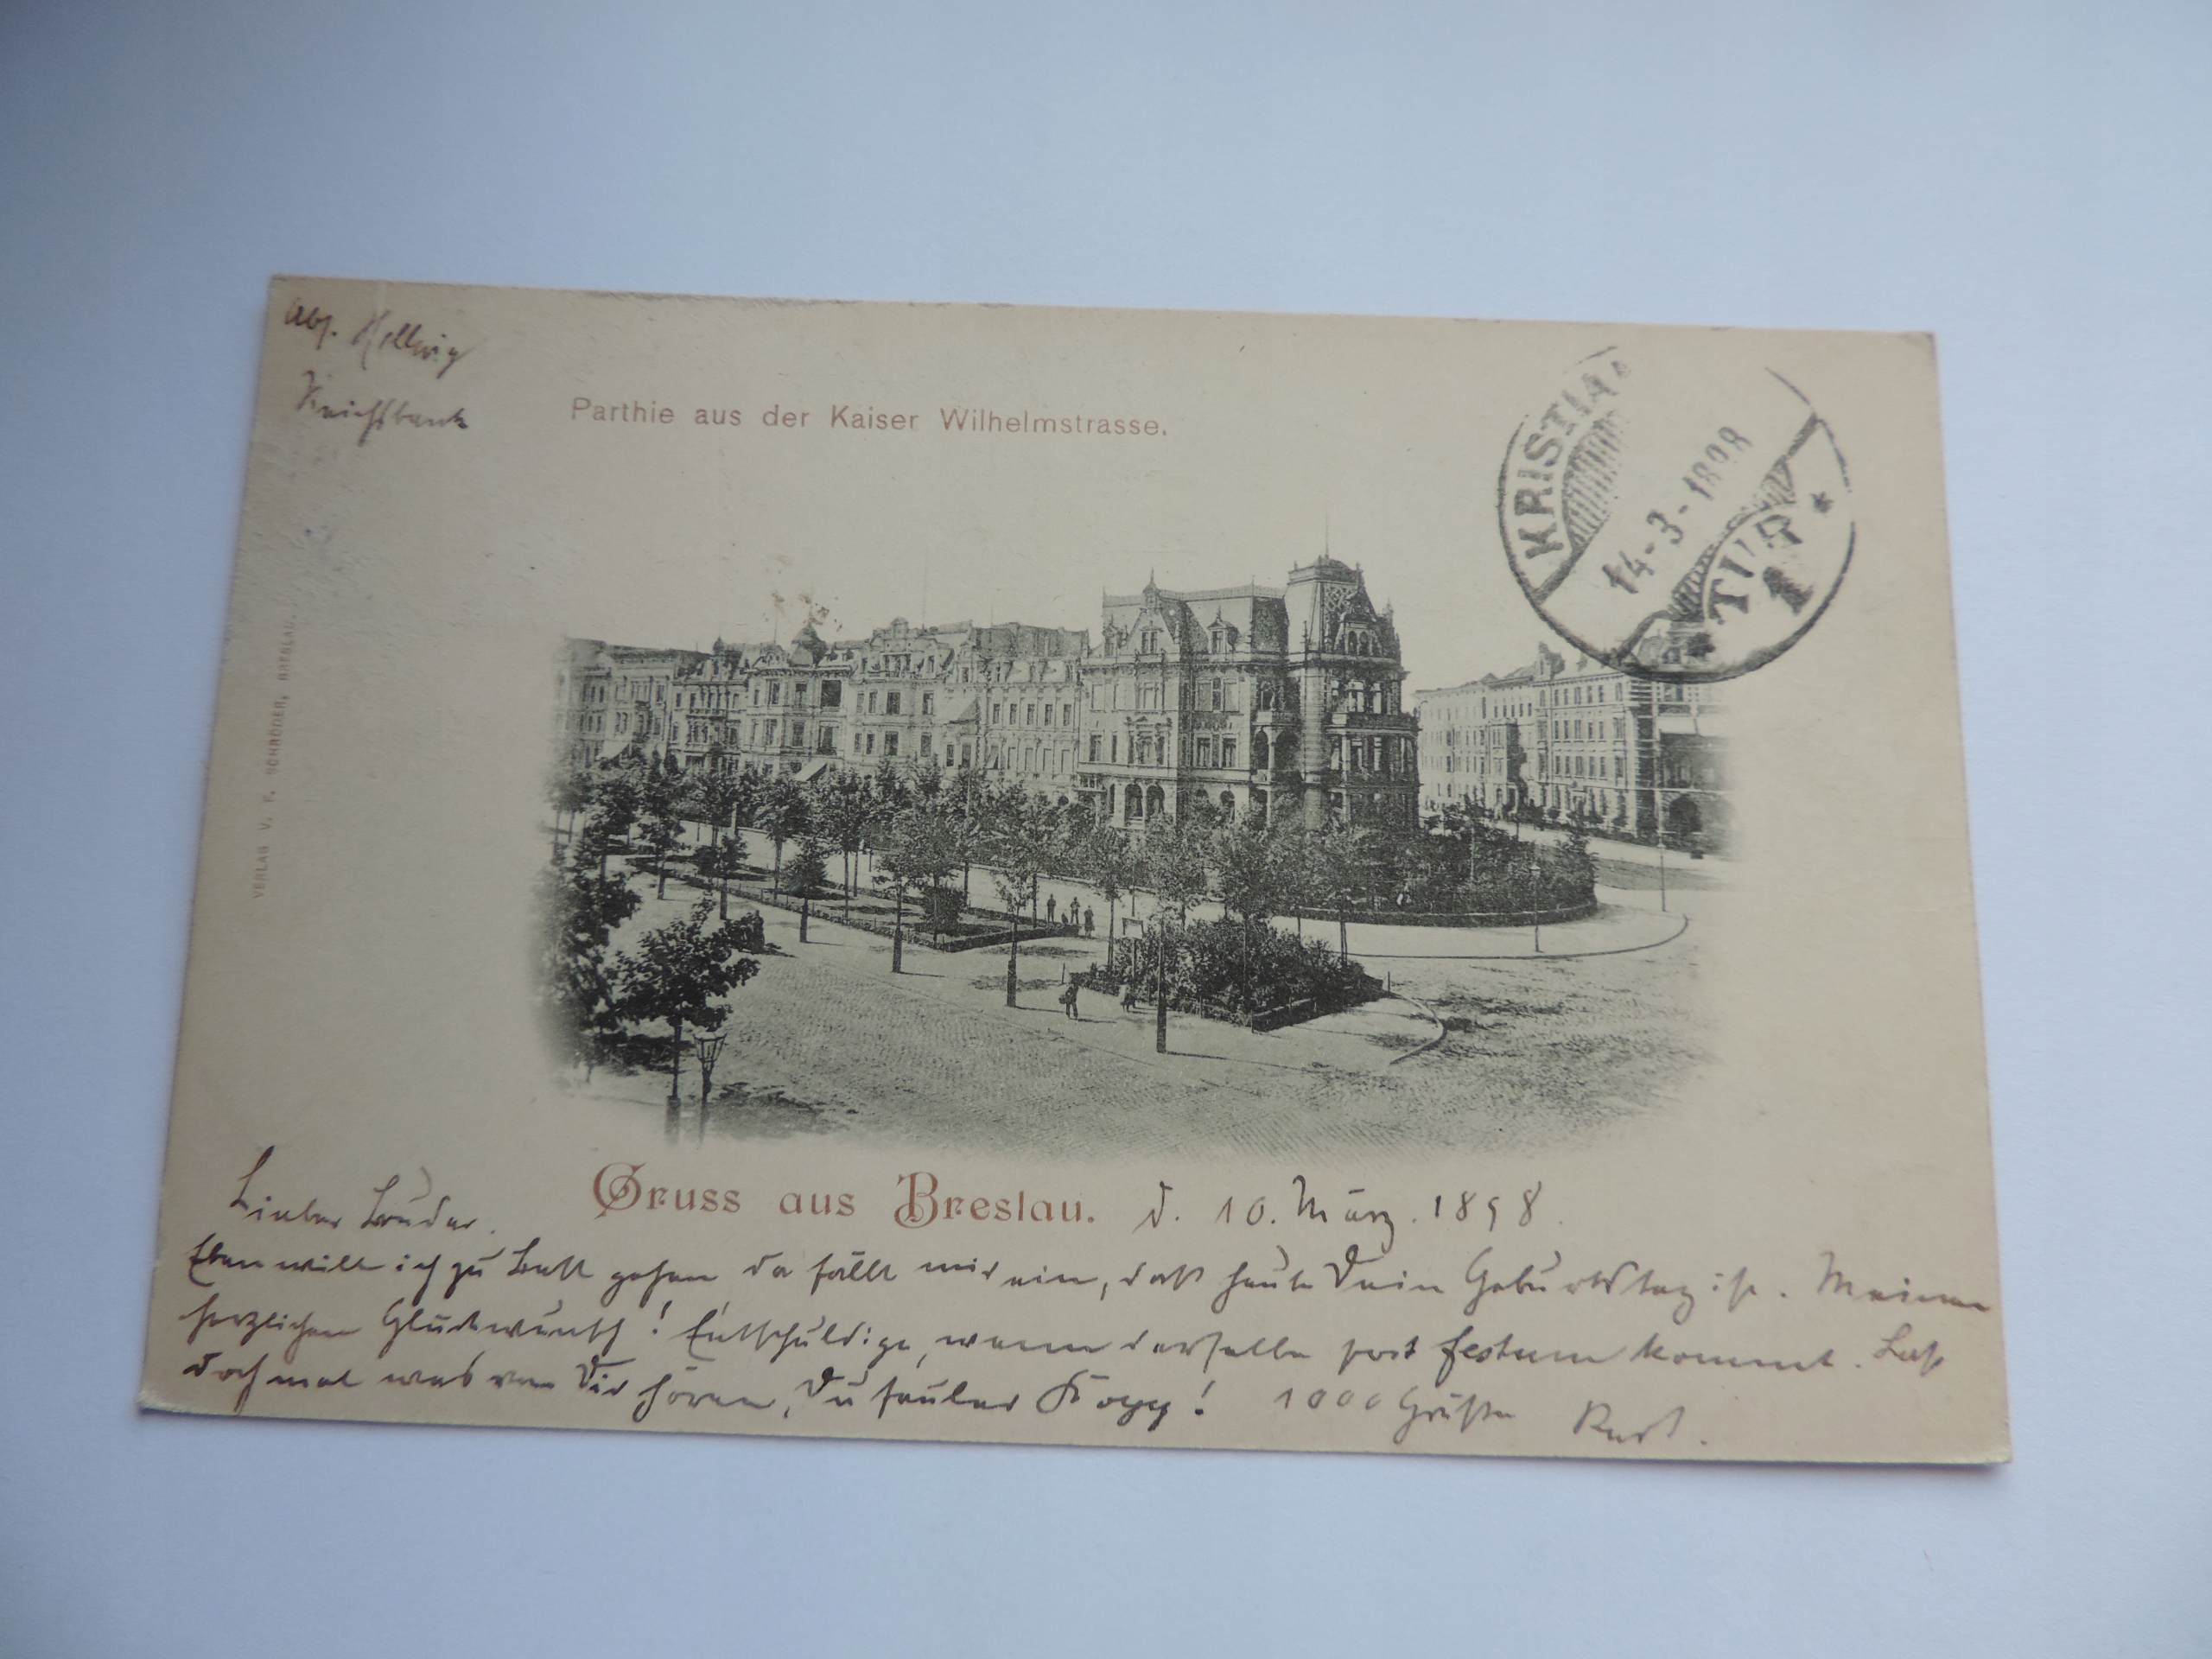 Abs. Hellwig
Reichsbank
Parthie aus der Kaiser Wilhelmstrasse.
KRISTIA
14-3-1898
TUR
1
VERLAG V. F. SCHRÖDER, BRESLAU.
Gruss aus Breslau. d. 10. März. 1898.
Lieber Bruder.
Eben will ich zu Bett gehen da fällt mir ein, daß heute Dein Geburtstag ist. Meinen
herzlichen Glückwunsch! Entschuldige, wenn derselbe post festum kommt. Laß
doch mal was von Dir hören, Du fauler Kopp! 1000 Grüße